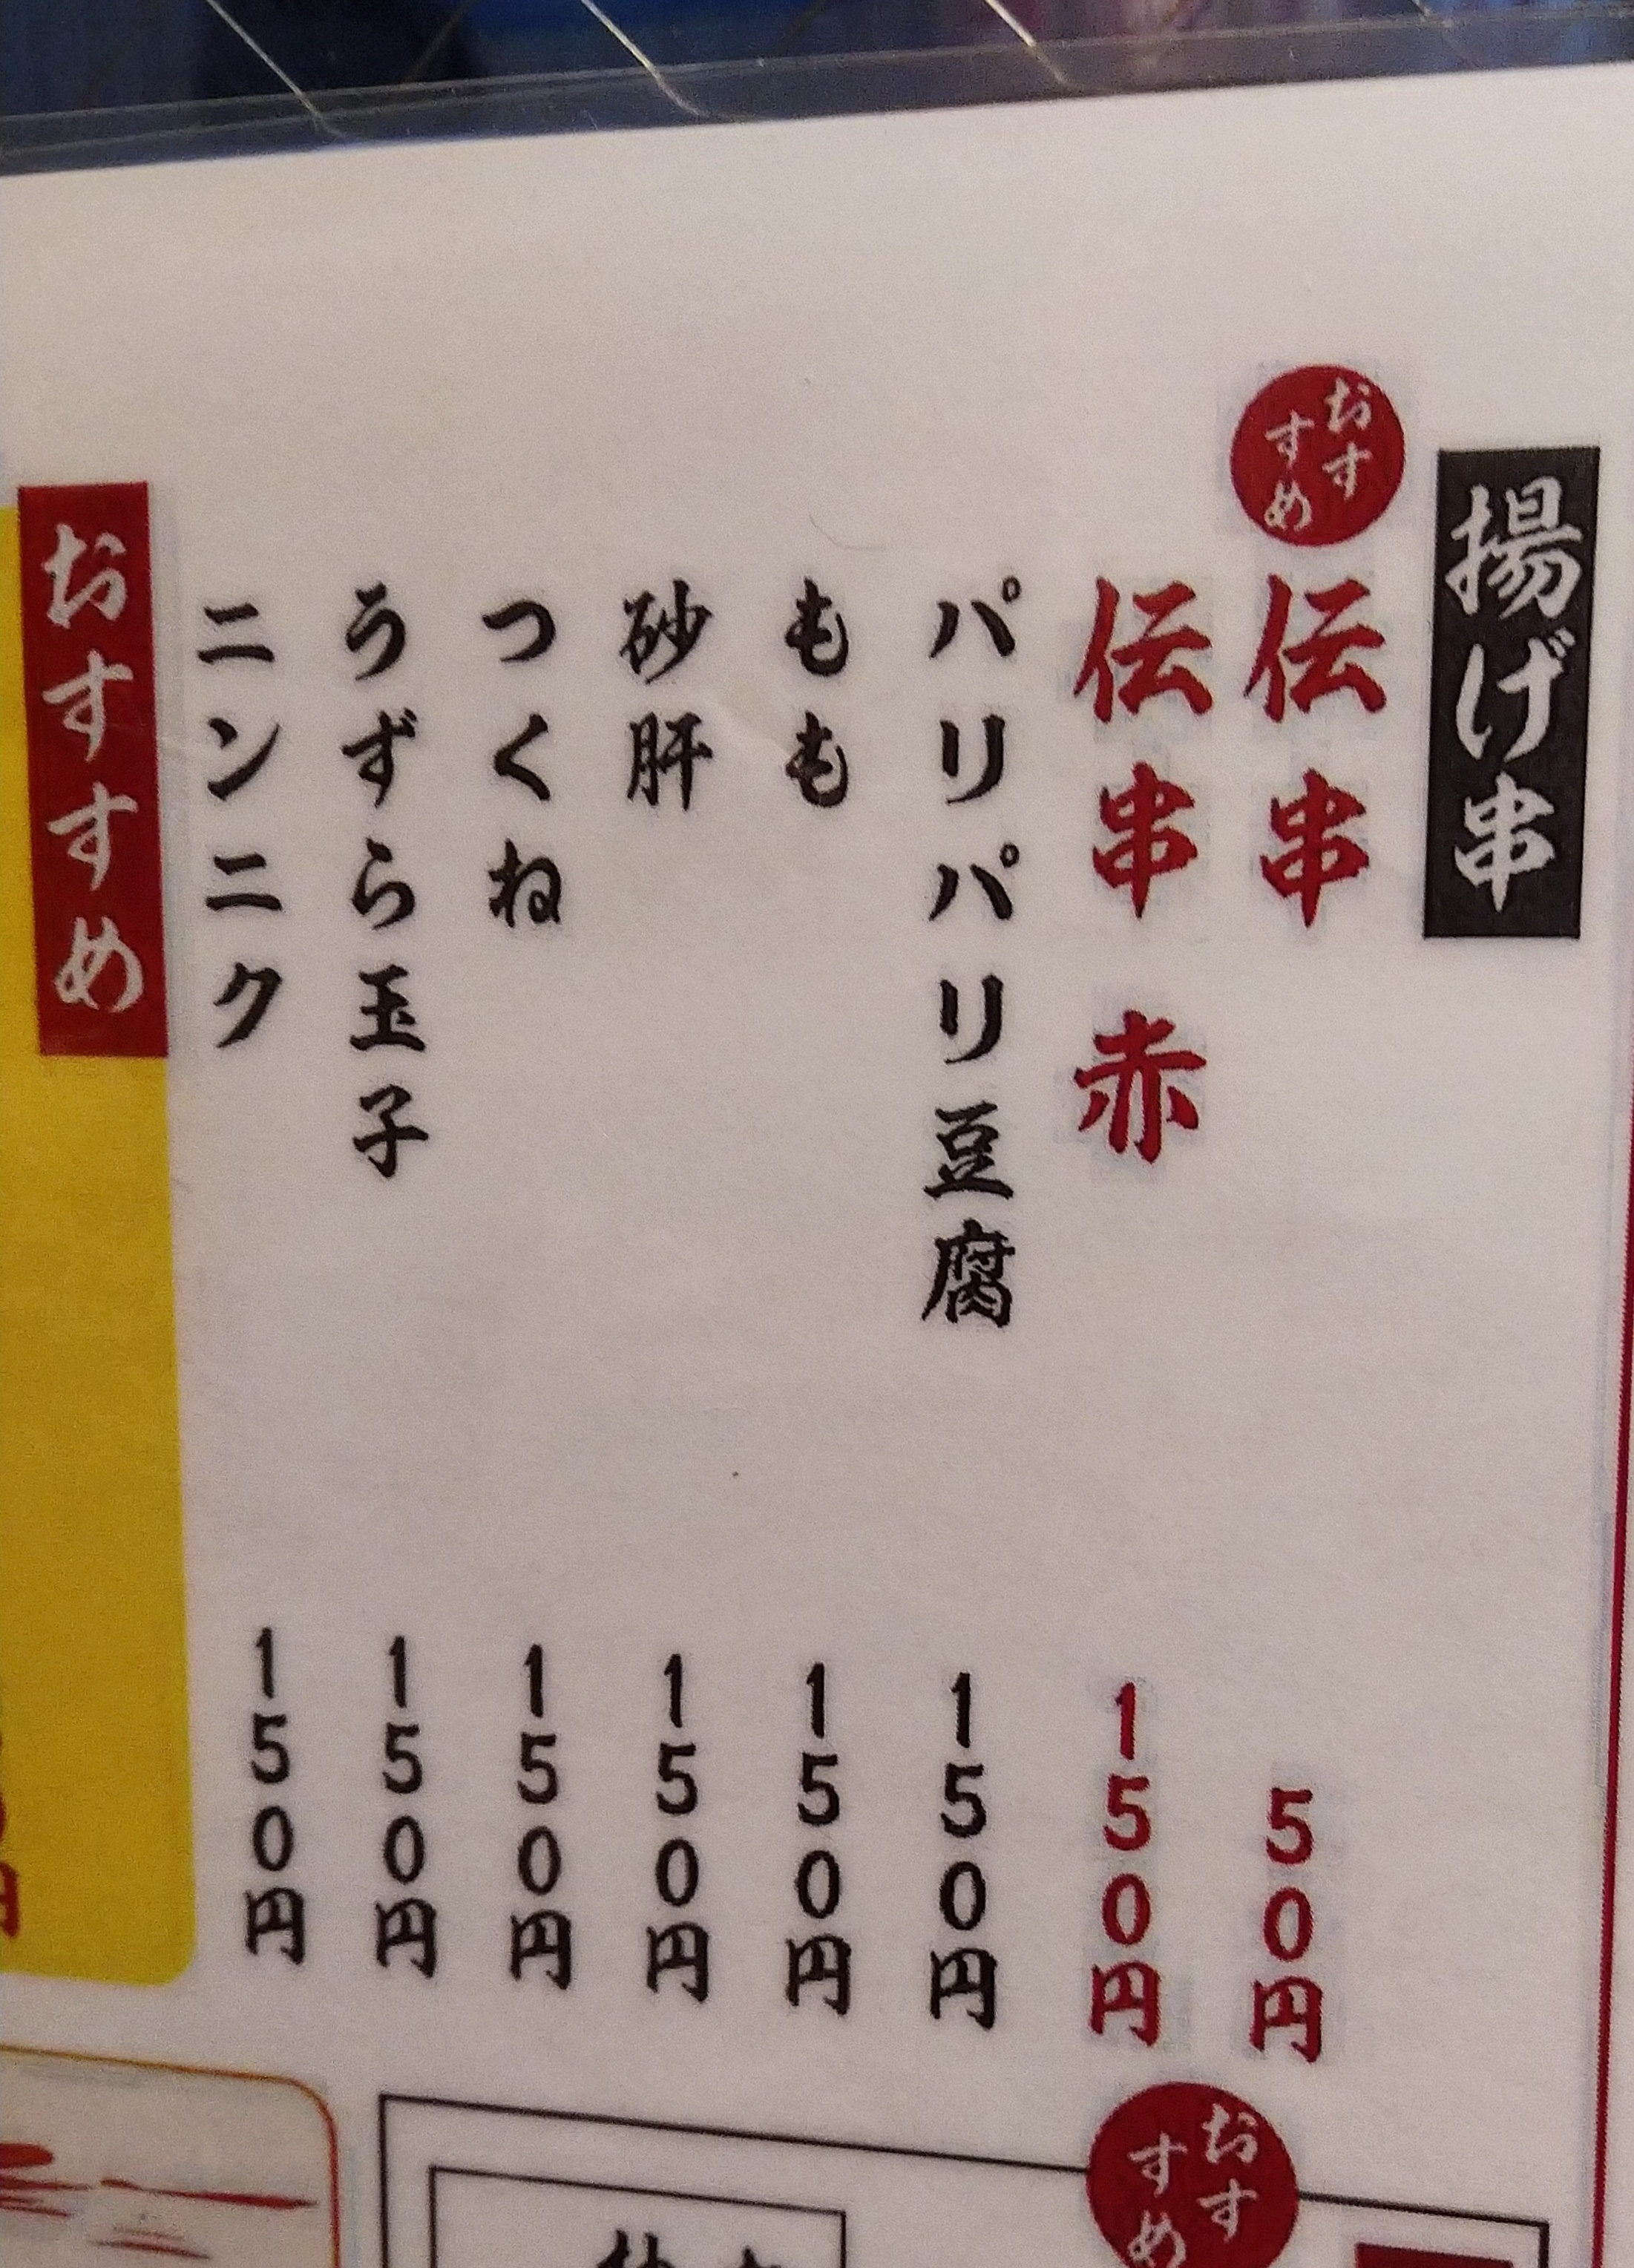 揚げ串
おすすめ
伝串
50円
伝串 赤
150円
パリパリ豆腐
150円
もも
150円
砂肝
150円
つくね
150円
うずら玉子
150円
ニンニク
150円
おすすめ
円
おすすめ